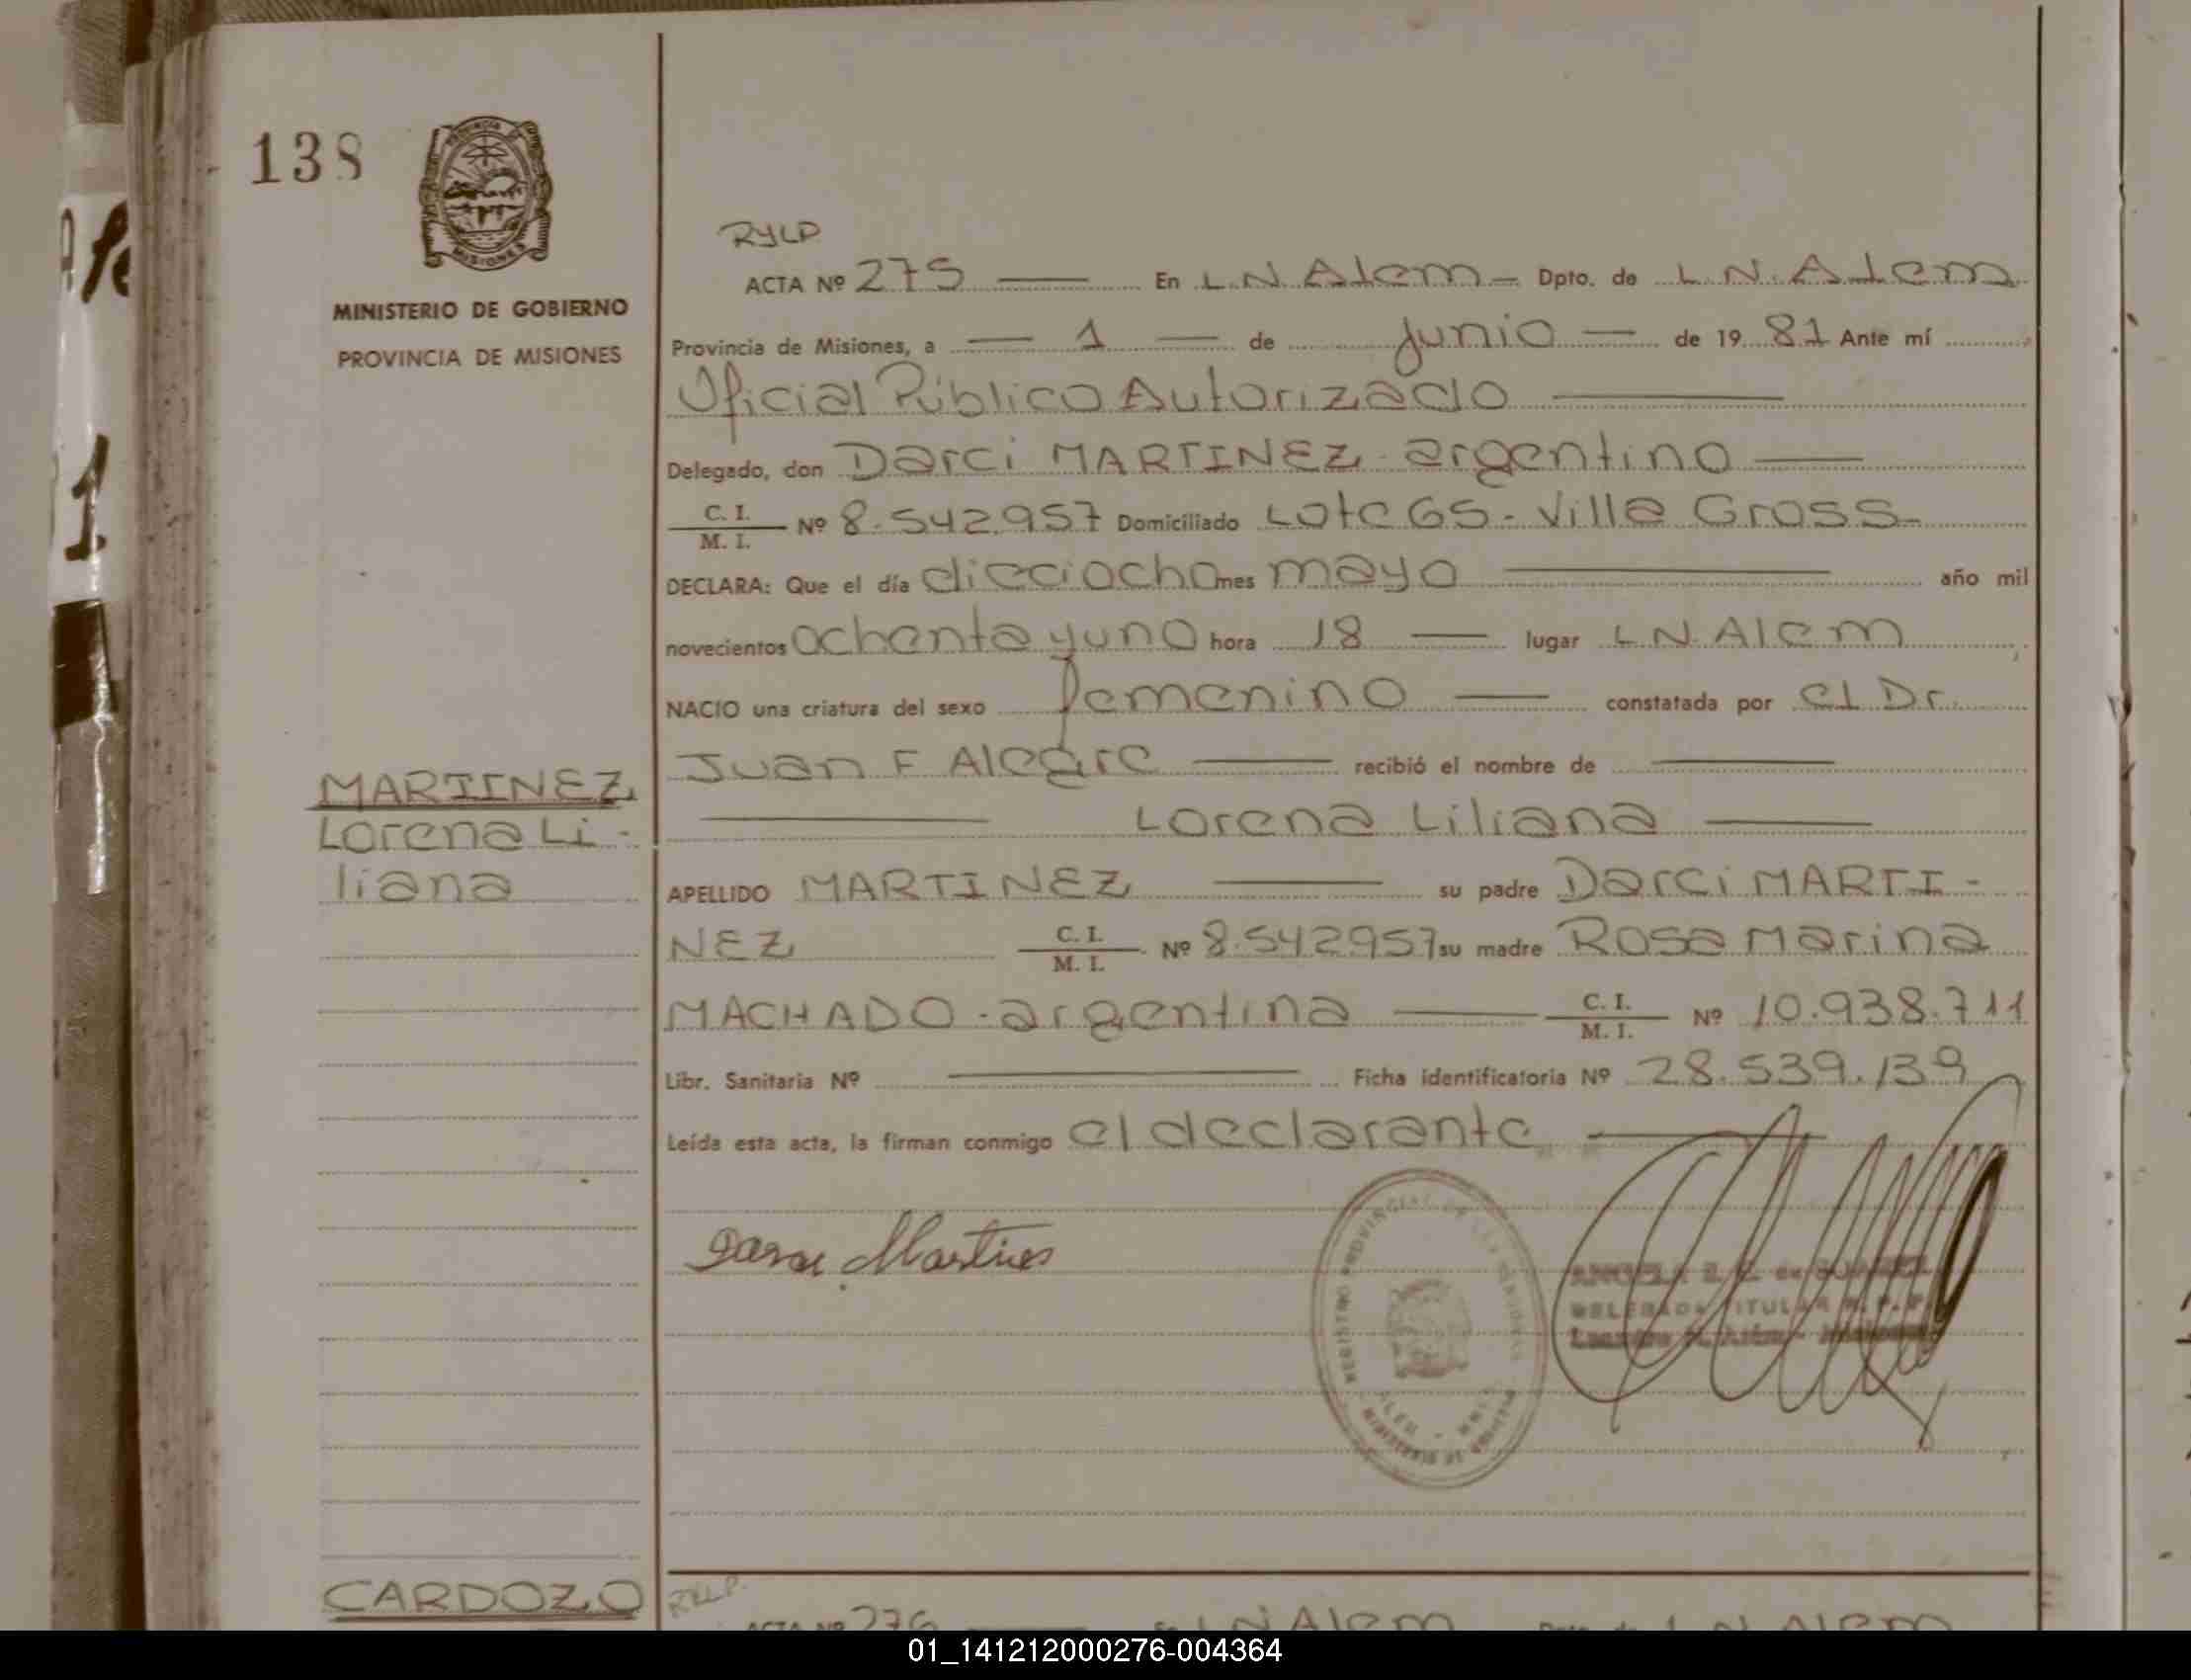 138
MINISTERIO DE GOBIERNO
PROVINCIA DE MISIONES
RYLP
ACTA Nº 275 — En L.N. Alem — Dpto. de L.N. Alem
Provincia de Misiones, a — 1 — de Junio — de 1981 Ante mí
Oficial Público Autorizado —
Delegado, don Darci MARTINEZ - argentino —
C. I. / M. I. Nº 8.542.957 Domiciliado Lote 65 - Villa Gross -
DECLARA: Que el día dieciocho mes mayo — año mil
novecientos ochenta y uno hora 18 — lugar L N. Alem
NACIO una criatura del sexo femenino — constatada por el Dr.
Juan F Alegre — recibió el nombre de —
— Lorena Liliana —
MARTINEZ
Lorena Li-
liana
APELLIDO MARTINEZ — su padre Darci MARTI-
NEZ C. I. / M. I. Nº 8.542957 su madre Rosa Marina
MACHADO - argentina — C. I. / M. I. Nº 10.938.711
Libr. Sanitaria Nº — Ficha identificatoria Nº 28.539.139
Leída esta acta, la firman conmigo el declarante —
Martines
REGISTRO PROVINCIAL DE LAS PERSONAS
ANGELA
DELEGADA TITULAR R. P. P.
Leandro N. Alem - Misiones
CARDOZO
RYLP.
ACTA Nº 276 En L N Alem Dpto. de L N Alem
01_141212000276-004364